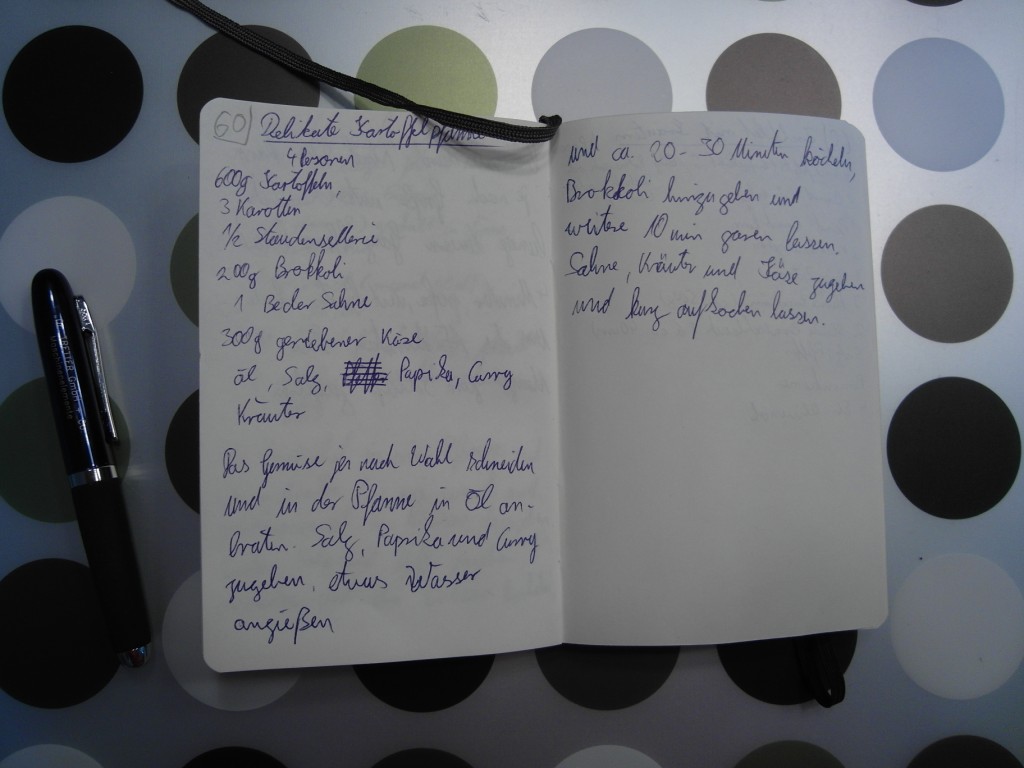 60 Delikate Kartoffelpfanne
4 Personen
600g Kartoffeln,
3 Karotten
1/2 Staudensellerie
200g Brokkoli
1 Becher Sahne
300g geriebener Käse
Öl, Salz, Paprika, Curry
Kräuter
Das Gemüse je nach Wahl schneiden
und in der Pfanne in Öl an-
braten. Salz, Paprika und Curry
zugeben, etwas Wasser
angießen
und ca. 20-30 Minuten köcheln,
Brokkoli hinzugeben und
weitere 10 min garen lassen.
Sahne, Kräuter und Käse zugeben
und kurz aufkochen lassen.